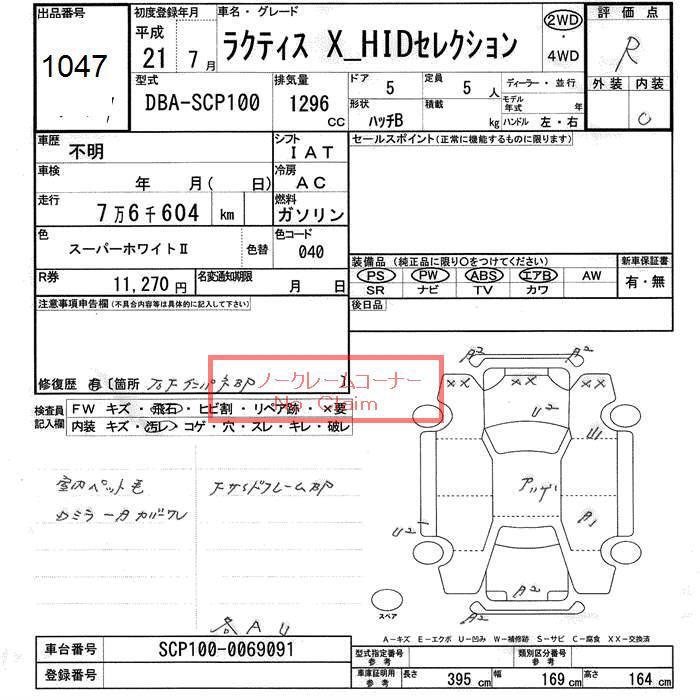 出品番号
1047
初度登録年月
平成
21 7月
車名・グレード
ラクティス X_HIDセレクション
2WD
・
4WD
評価点
R
外装 内装
C
型式
DBA-SCP100
排気量
1296
CC
ドア 5
定員 5 人
形状 ハッチB
積載 kg
ディーラー・並行
モデル年式 年
ハンドル 左・右
車歴 不明
シフト IAT
車検 年 月( 日)
冷房 AC
走行 7万6千604 km
燃料 ガソリン
色 スーパーホワイトⅡ 色替
色コード 040
R券 11,270円
名変通知期限 月 日
セールスポイント(正常に機能するものに限ります)
装備品 (純正品に限り○をつけてください)
PS PW ABS エアB AW
SR ナビ TV カワ
新車保証書
有・無
後日品
注意事項申告欄(不具合内容等は具体的に記入して下さい)
修復歴 有 〔箇所
ノークレームコーナー
No Claim
検査員
記入欄
FW キズ・飛石・ヒビ割・リペア跡・×要
内装 キズ・汚レ・コゲ・穴・スレ・キレ・破レ
室内ペット毛
カミラーカバーワレ
FサイドフレームBP
各AU
A2
A2
XX
XX
U2
U1
アリゲイ
A1
U2
1
A2
A2
スペア
A−キズ E−エクボ U−凹み W−補修跡 S−サビ C−腐食 XX−交換済
車台番号 SCP100-0069091
登録番号
型式指定番号
参考
類別区分番号
参考
車庫証明用
参考
長さ 395 cm
幅 169 cm
高さ 164 cm